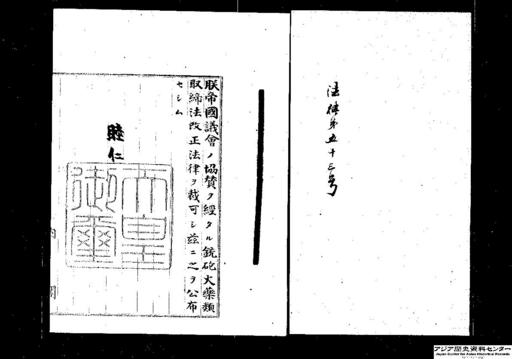 法律第五十三号
朕帝國議會ノ協賛ヲ經タル銃砲火藥類
取締法改正法律ヲ裁可シ茲ニ之ヲ公布
セシム
睦仁
天皇
御璽
内閣
アジア歴史資料センター
Japan Center for Asian Historical Records